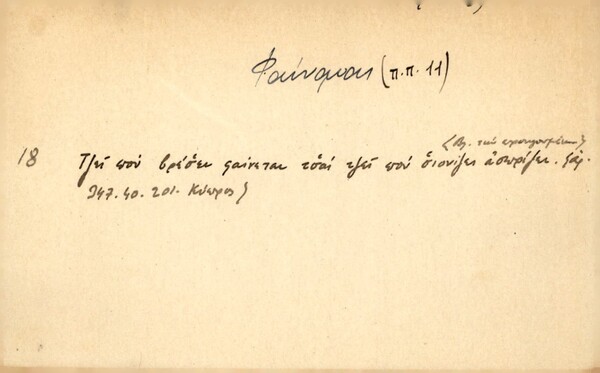 Φαίνομαι (π.π. 11)
18 Τζεῖ ποὺ βρέσ̌ει φαίνεται τσ̌αὶ τζεῖ ποὺ σ̌ιονίζει ἀσπρίζει.
347. 40. 201. Κύπρος